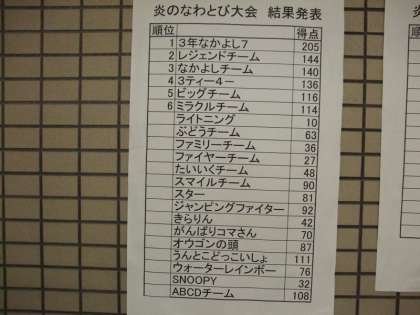 炎のなわとび大会 結果発表
順位 得点
1 3年なかよし7 205
2 レジェンドチーム 144
3 なかよしチーム 140
4 3ティー4ー 136
5 ビッグチーム 116
6 ミラクルチーム 114
ライトニング 10
ぶどうチーム 63
ファミリーチーム 36
ファイヤーチーム 27
たいいくチーム 48
スマイルチーム 90
スター 81
ジャンピングファイター 92
きらりん 42
がんばりコマさん 70
オウゴンの頭 87
うんとこどっこいしょ 111
ウォーターレインボー 76
SNOOPY 32
ABCDチーム 108